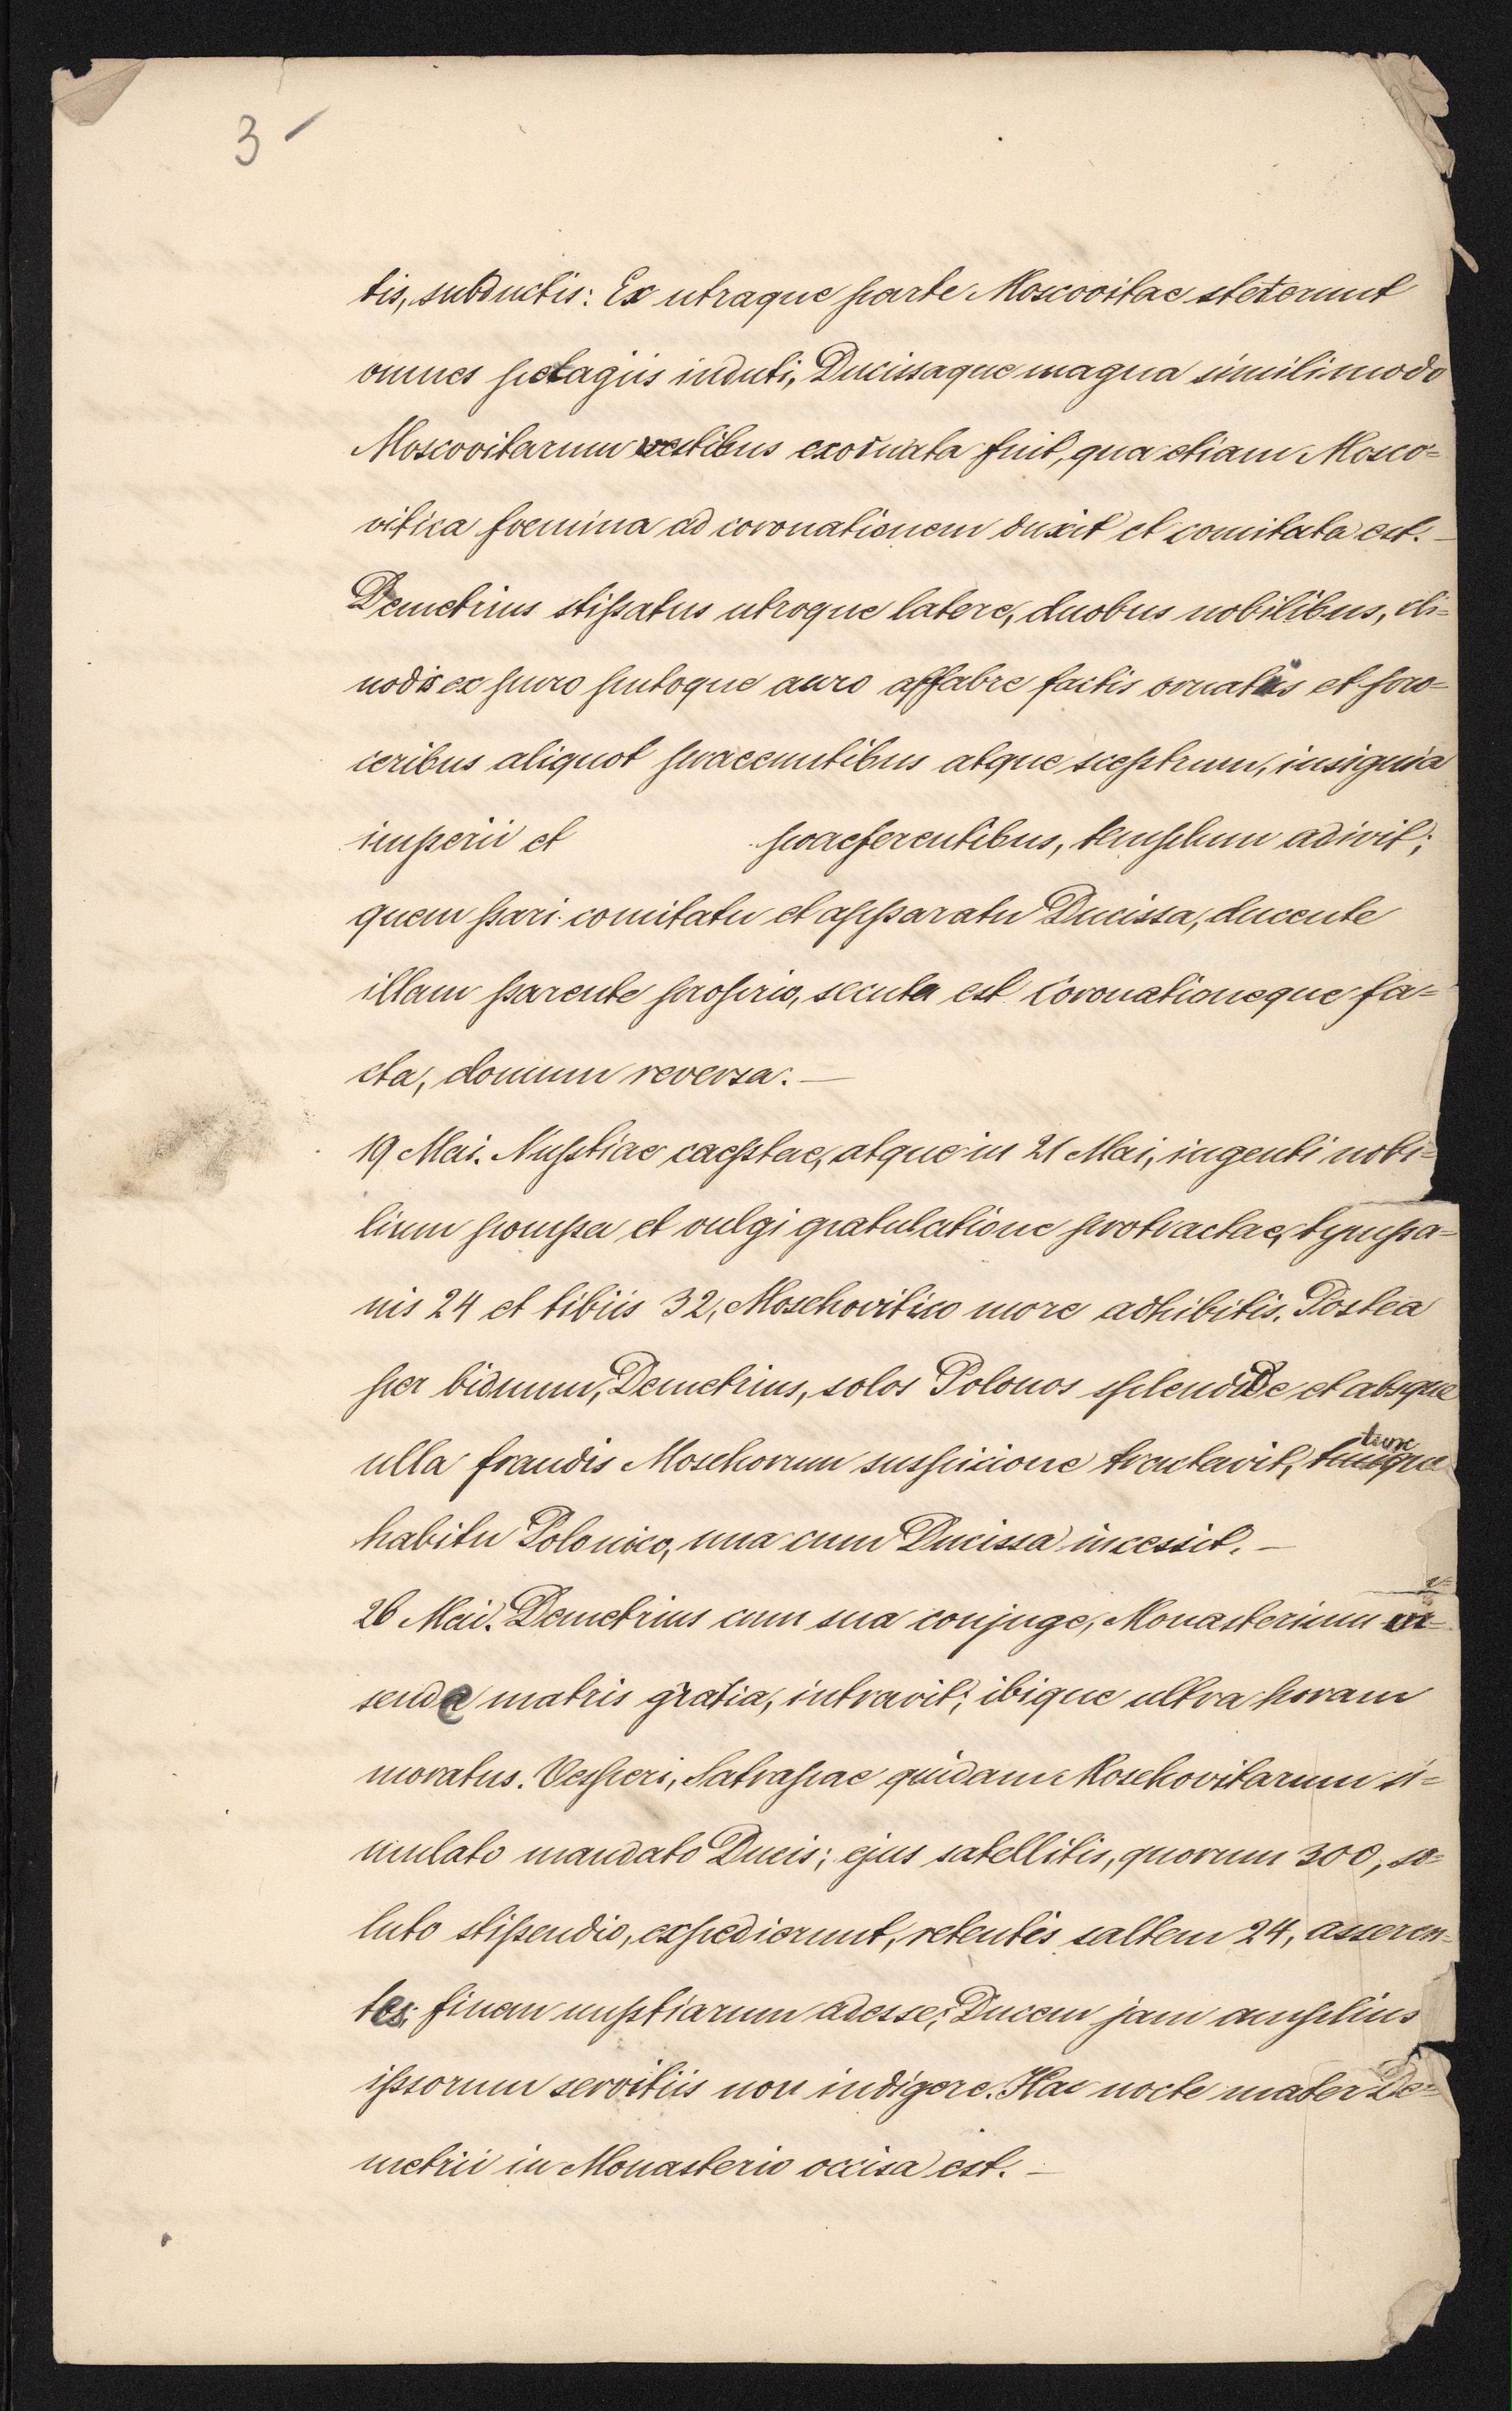 3
tis, subductis: Ex utraque parte Moscovitae steterunt
omnes petagiis induti, Ducissaque magna simili modo
Moscovitarum vestibus exornata fuit, qua etiam Mosco=
vitica foemina ad coronationem duxit et comitata est. —
Demetrius stipatus utroque latere, duobus nobilibus, cli=
nodis ex puro putoque auro affabre factis ornatus et pro=
ceribus aliquot praeeuntibus atque sceptrum, insignia
imperii et praeferentibus, templum adivit;
quem pari comitatu et apparatu Ducissa, ducente
illam parente proprio, secuta est Coronationeque fa=
cta, domum reversa. —
19 Mai. Nuptiae caeptae, atque in 21 Mai, ingenti nobi=
lium pompa et vulgi gratulatione protractae, tympa=
nis 24 et tibiis 32, Moschovitico more adhibitis. Postea
per biduum, Demetrius, solos Polonos splendide et absque
ulla fraudis Moschorum suspicione tractavit, tuncque
habitu Polonico, una cum Ducissa incessit. —
26 Mai. Demetrius cum sua conjuge, Monasterium vi=
senda matris gratia, intravit; ibique ultra horam
moratus. Vesperi, Satrapae quidam Moschovitarum si=
mulato mandato Ducis; ejus satellitis, quorum 300, so=
luto stipendio, expedierunt, retentis saltem 24, asseren=
tes: finem nuptiarum adesse; Ducem jam amplius
ipsorum servitiis non indigere. Hac nocte mater De=
metrii in Monasterio occisa est. —